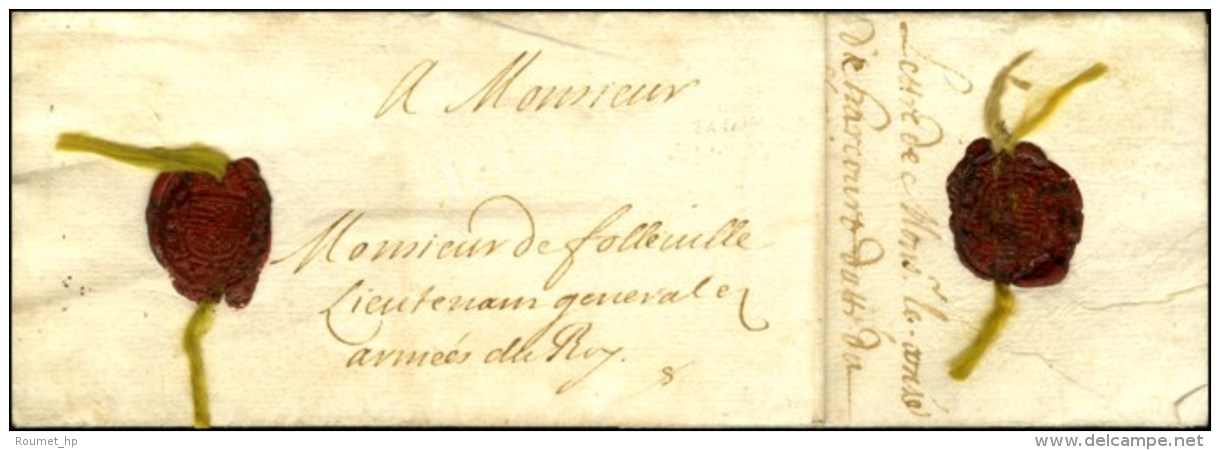 A Monsieur
Monsieur de folleuille
Lieutenant general es
armées du Roy.
Lettre de Mons.r le
d'harcourt du
Roumet_hp
www.delcampe.net